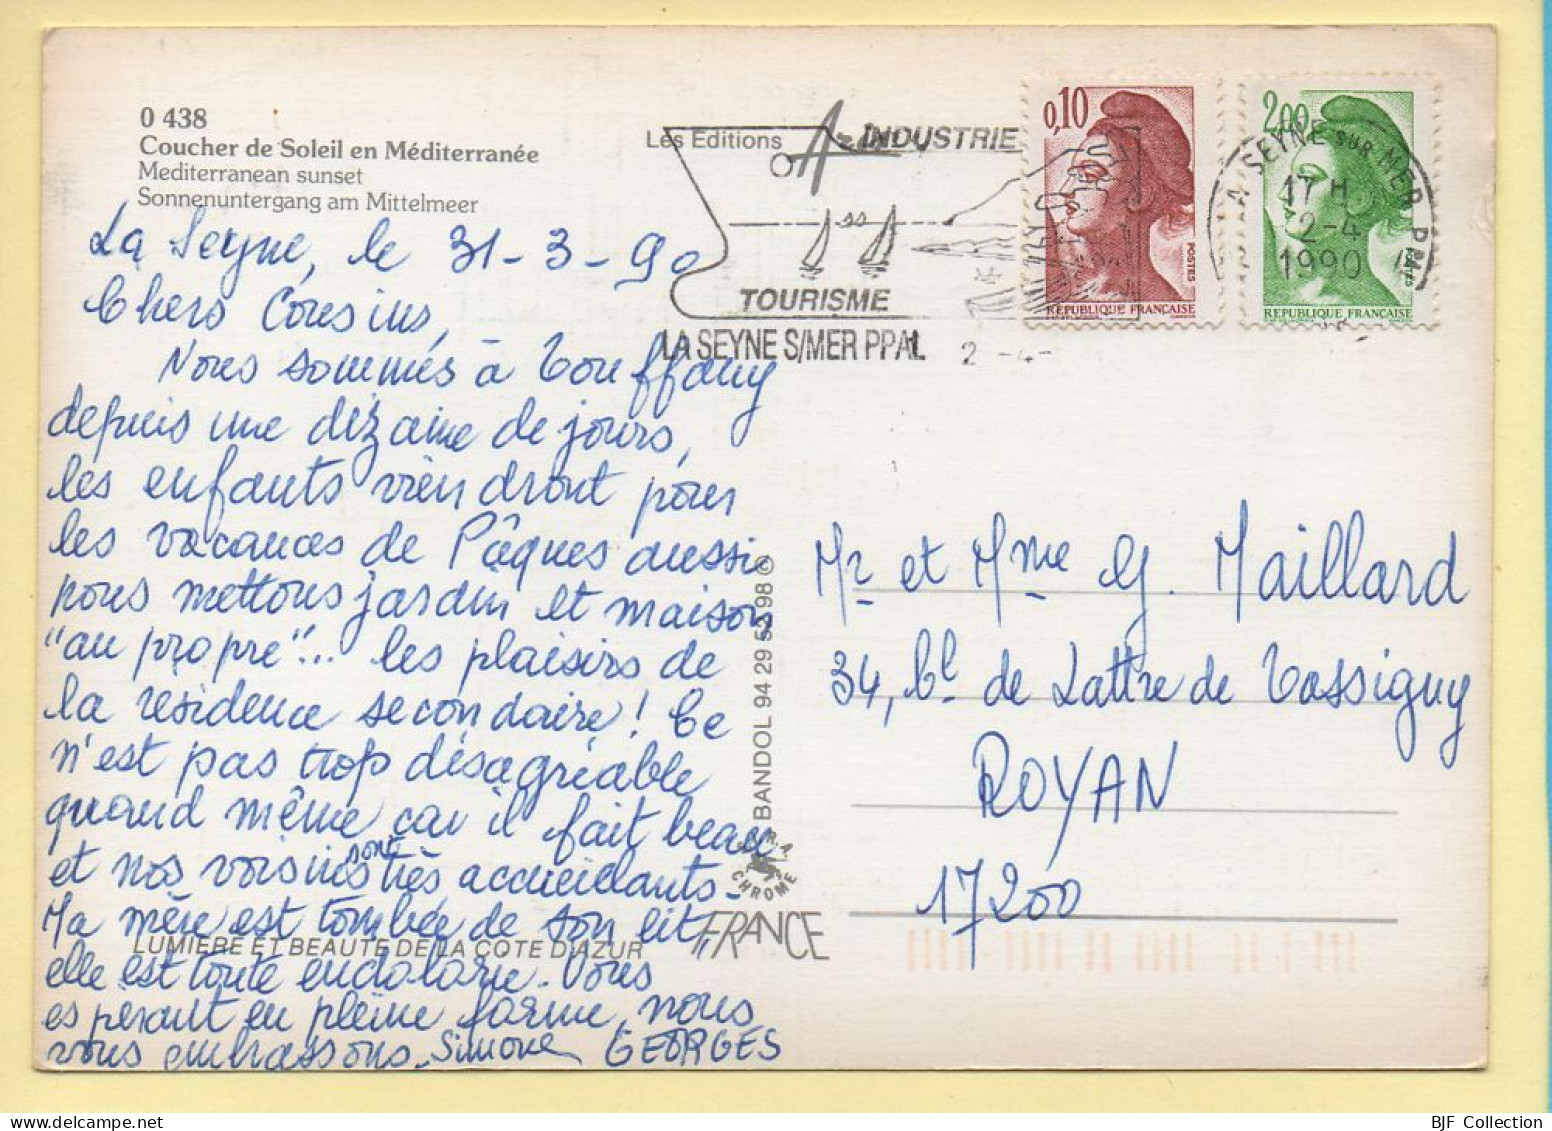 0 438
Coucher de Soleil en Méditerranée
Mediterranean sunset
Sonnenuntergang am Mittelmeer
La Seyne, le 31-3-90
Chers Cousins,
Nous sommes à Touffany
depuis une dizaine de jours,
les enfants viendront pour
les vacances de Pâques aussi
nous mettons jardin et maison
"au propre"... les plaisirs de
la résidence secondaire! Ce
n'est pas trop désagréable
quand même car il fait beau
et nos voisins sont très accueillants-
Ma mère est tombée de son lit,
elle est toute endolorie. Vous
espérant en pleine forme, nous
vous embrassons. Simone GEORGES
LUMIERE ET BEAUTE DE LA COTE D'AZUR
Les Editions
INDUSTRIE
TOURISME
LA SEYNE S/MER PPAL
2 -4-
0,10
POSTES
REPUBLIQUE FRANÇAISE
2,00
POSTES
REPUBLIQUE FRANÇAISE
LA SEYNE SUR MER PPAL
17 H
2-4
1990
BANDOL 94 29 53 98 ©
CHROME
FRANCE
Mr et Mme G. Maillard
34, Bd de Lattre de Tassigny
ROYAN
17200
BJF Collection